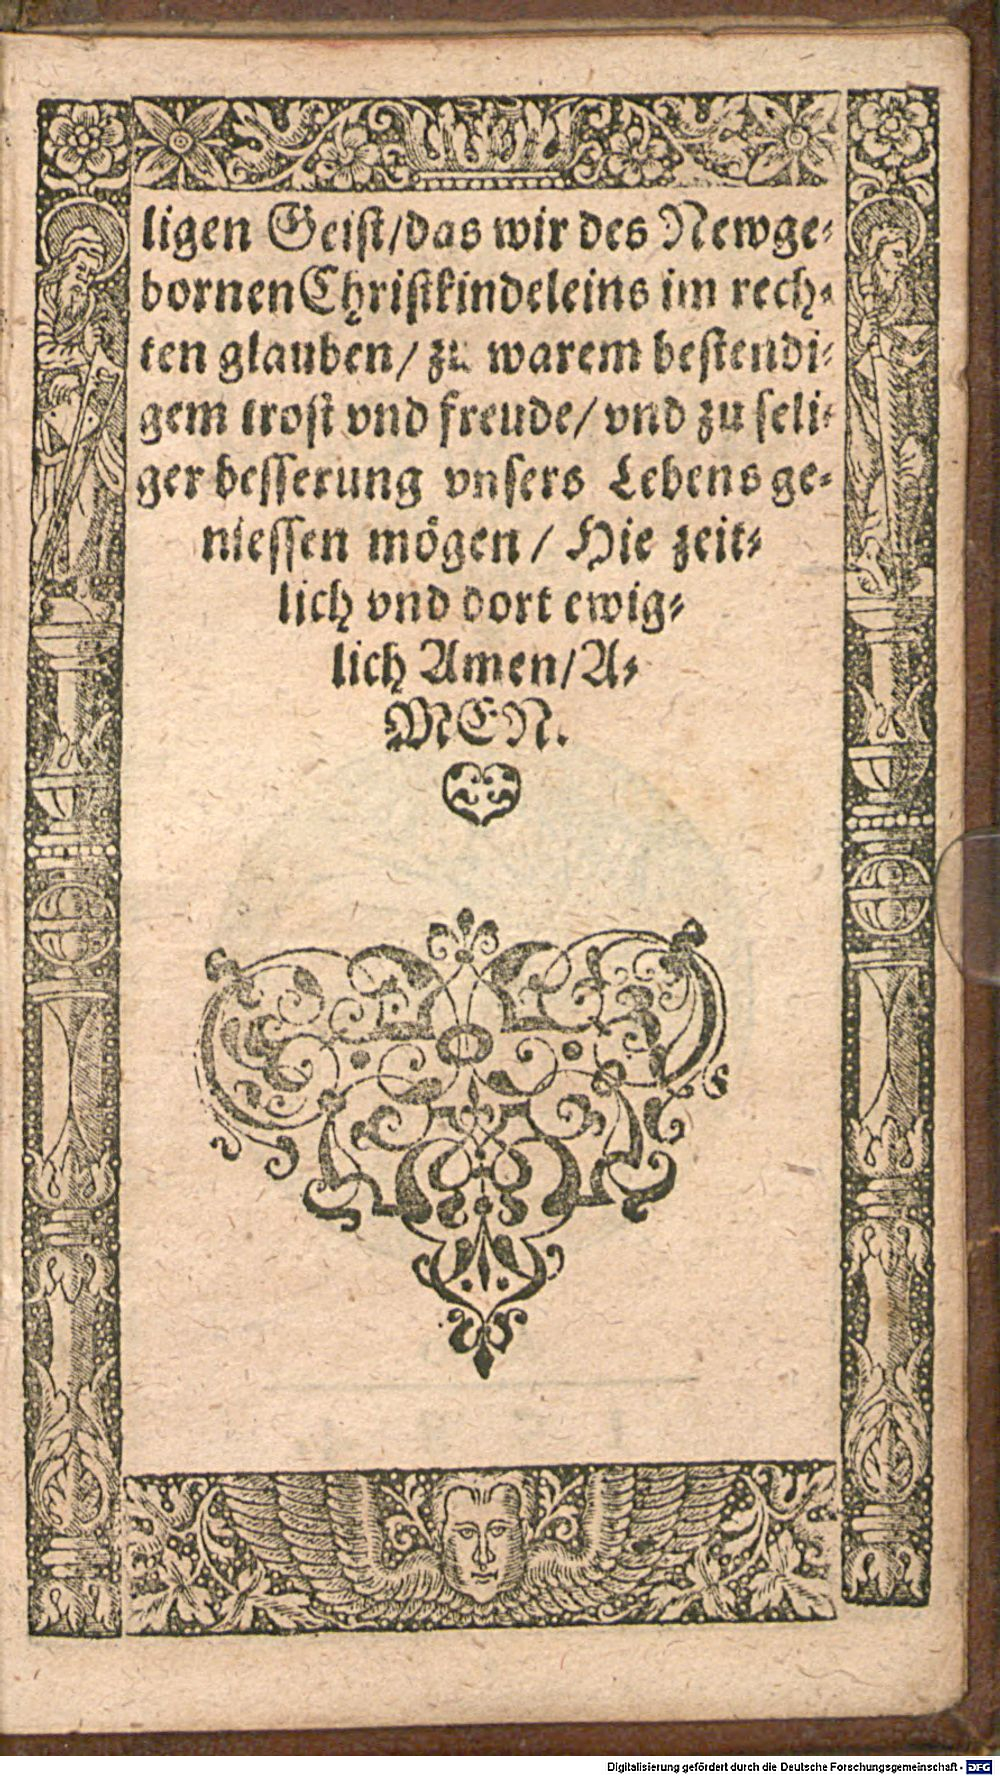 ligen Geiſt/das wir des Newge⸗
bornen Chriſtkindeleins im rech⸗
ten glauben/ zu warem beſtendi⸗
gem troſt vnd freude/ vnd zu ſeli⸗
ger beſſerung vnſers Lebens ge⸗
nieſſen mögen/ Hie zeit⸗
lich vnd dort ewig⸗
lich Amen/A⸗
MEN.
Digitalisierung gefördert durch die Deutsche Forschungsgemeinschaft - DFG